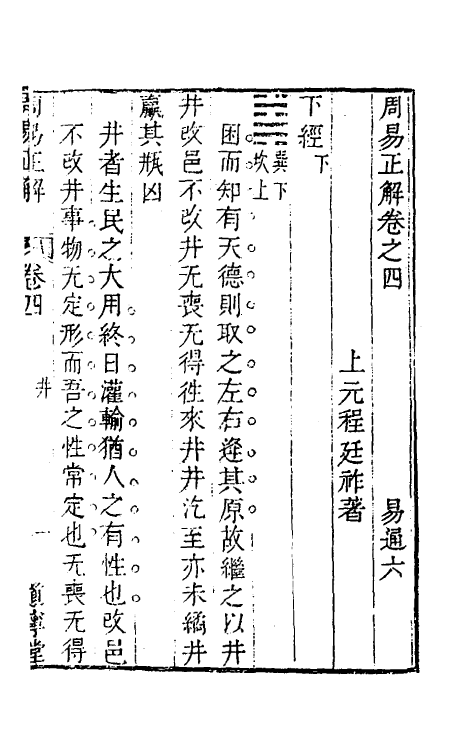 周易正解卷之四　易通六
上元程廷祚著
下經下
䷯巽下坎上
困而知有天德則取之左右逢其原故繼之以井
井改邑不改井无喪无得往來井井汔至亦未繘井
羸其瓶凶
井者生民之大用終日灌輸猶人之有性也改邑
不改井事物无定形而吾之性常定也无喪无得
周易正解　卷四　井　一　道寧堂